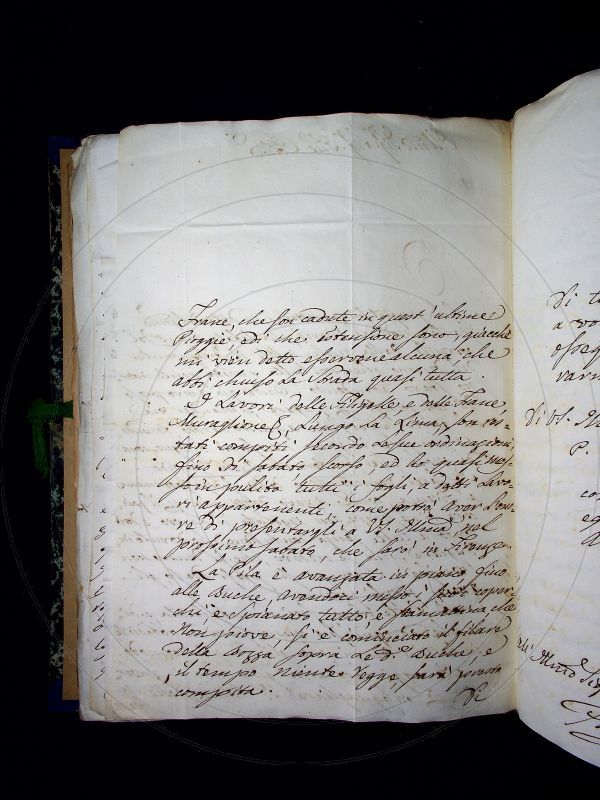 Frane, che son cadute in quest'ultime
Piogge, e di che estensione sono, giacchè
mi vien detto esservene alcuna che
abbi chiuso la Strada quasi tutta.
I Lavori delle Filzalle, e dalle Frane,
Muraglione &, Lungo la Lima son re=
stati compiti secondo le sue ordinazioni
fino di sabato scorso, ed ho quasi mes=
so in pulito tutti i fogli, a detti Lavo=
ri appartenenti, come potrò aver l'ono=
re di presentargli a VS. Illma nel
prossimo sabato, che sarò in Firenze.
La Pila è avanzata in piano fino
alle Buche avendovi messo i suoi coper=
chi, e spianato tutto, e stamattina che
non piove, si è cominciato il filare
della Bozza sopra le de. Buche, e
il tempo niente regge, sarà presto
compita.
Di
Di t
a vo
osseq
varm
Di VS. Il
P.
co
eg